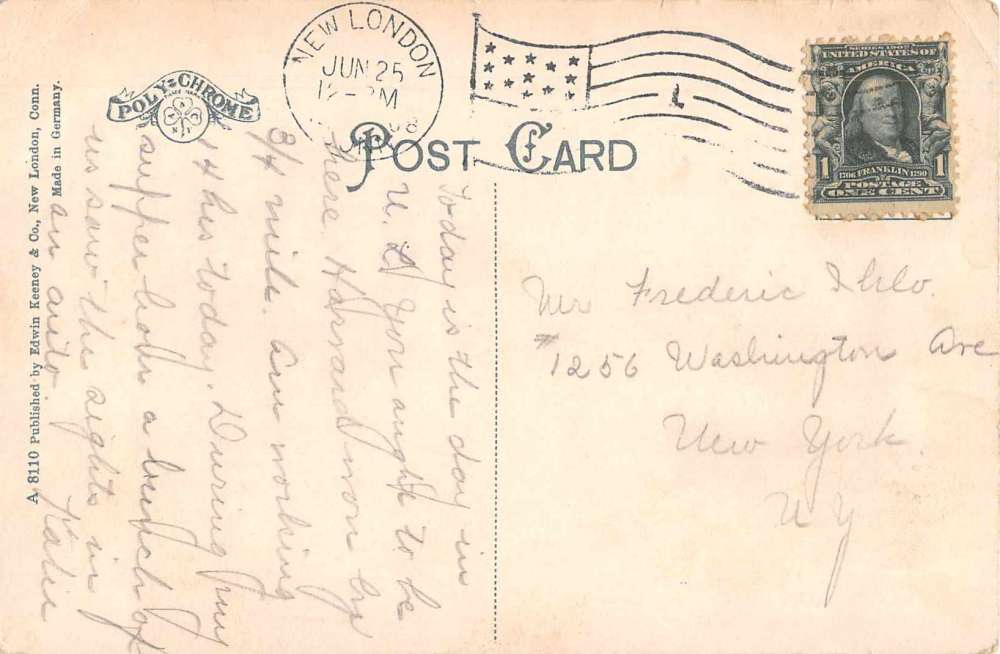 A 8110 Published by Edwin Keeney & Co., New London, Conn.
Made in Germany.
POLY-CHROME
NEW LONDON
JUN 25
12-PM
POST CARD
SERIES 1902
UNITED STATES OF
AMERICA
1706 FRANKLIN 1790
1 1
POSTAGE
ONE CENT
Today is the day in
N. L. You aught to be
here. Harvard won by
3/4 mile. Am working
14 hrs today. During my
supper hour a bunch of
us saw the sights in
an auto.
Katie
Mr Frederic
#1256 Washington Ave
New York
N Y